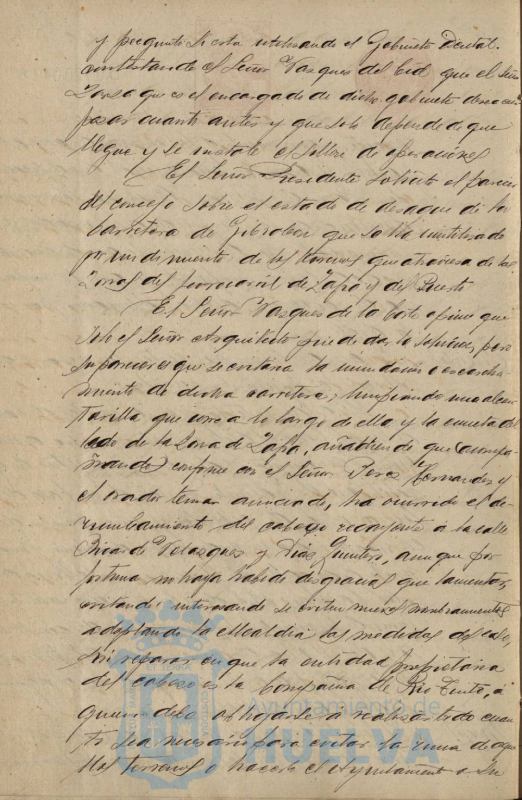 y pregunta si esta utilizando el Gabinete Dental.
contestando el Señor Vazquez del Cid que el Señor
Zorza que es el encargado de dicho gabinete desea em
pezar cuanto antes y que solo depende de que
llegue y se instale el sillon de operaciones
El Señor Presidente solicita el parecer
del concejo sobre el estado de desague de la
carretera de Gibraleon que se ha inutilizado
por undimiento de los terrenos que atraviesa de las
Zonas del ferrocarril de Zafra y del Puerto
El Señor Vazquez de la Corte opina que
solo el Señor Arquitecto puede dar la solucion, pero
su parecer es que se evitaria la inundacion o encharca
miento de dicha carretera, limpiando una alcan
tarilla que corre a lo largo de ella y la cuneta del
lado de la Zona de Zafra, añadiendo que acompa
ñando conforme con el Señor Perez Hernandez y
el orador tenian anunciado, ha ocurrido el de
rrumbamiento del cabezo recayente a la calle
Ricardo Velazquez y Diaz Quintero, aunque por
fortuna no haya habido desgracias que lamentar,
evitando interesando se eviten nuevos
adoptando la Alcaldia las medidas del caso,
sin reparar en que la entidad propietaria
del cabezo es la Compañia de Rio Tinto, á
quien debe obligarse á realizar todo cuan
to sea necesario para evitar la ruina de aque
llos terrenos o hacerlo el Ayuntamiento a su
Ayuntamiento de
HUELVA